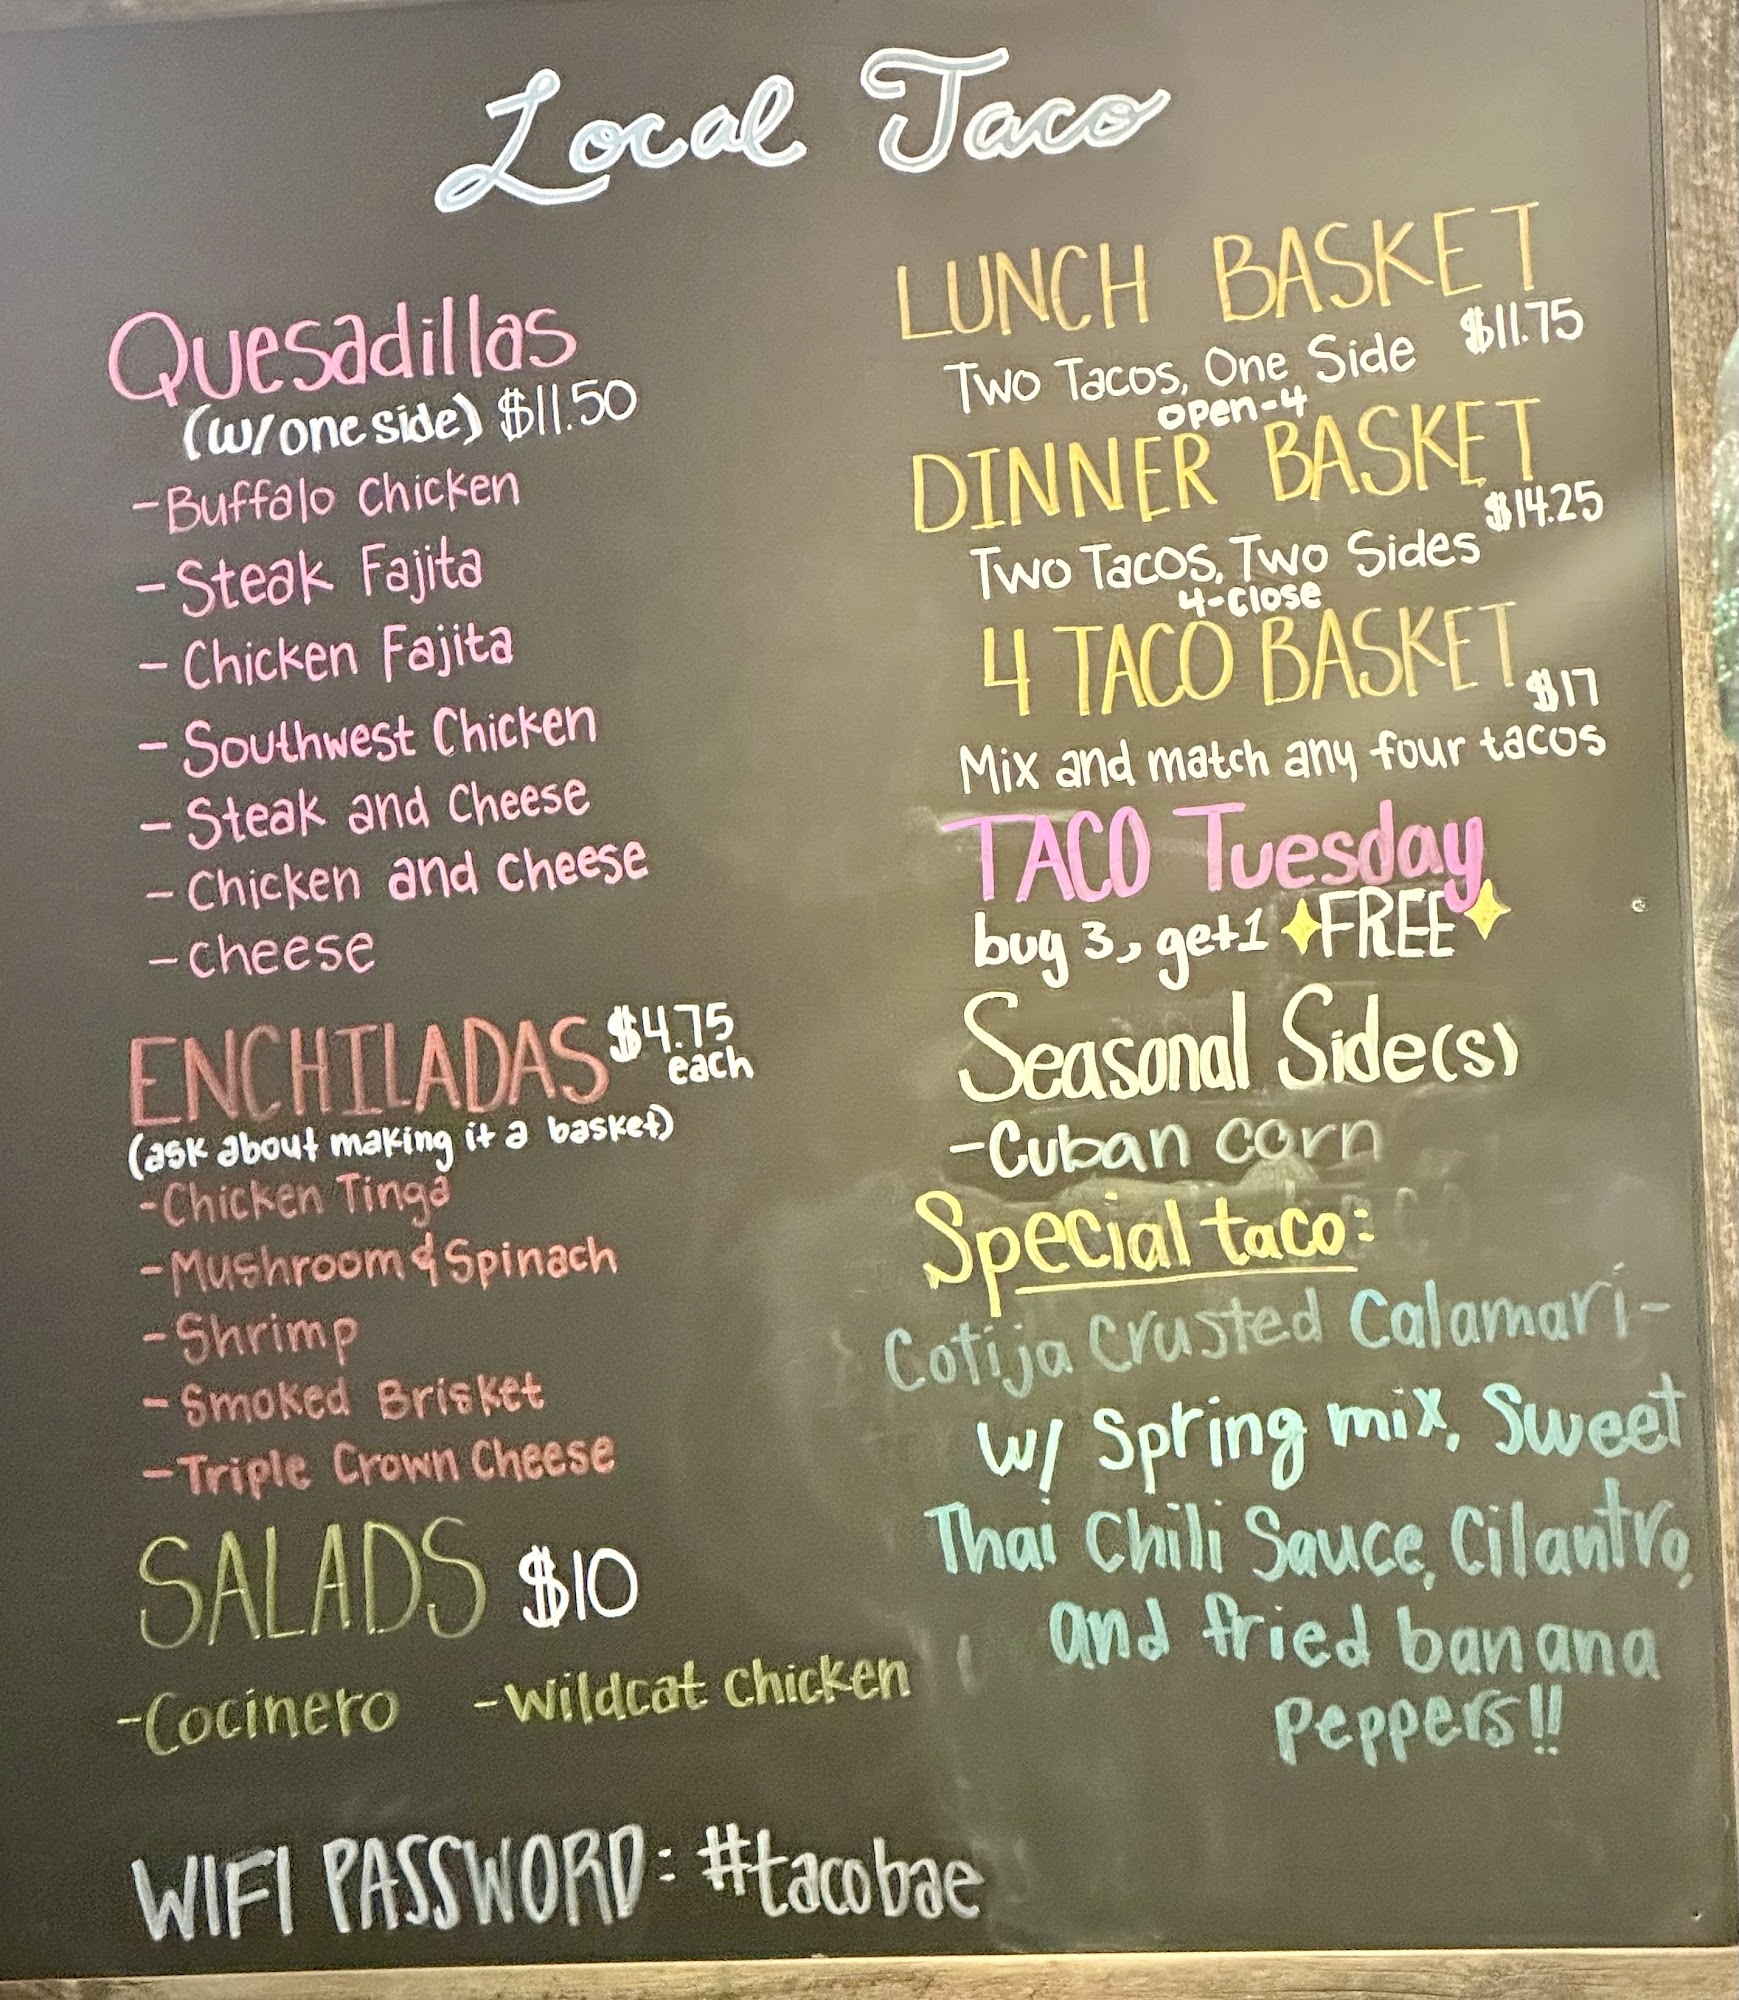 Local Taco
Quesadillas
(w/one side) $11.50
-Buffalo Chicken
-Steak Fajita
-Chicken Fajita
-Southwest Chicken
-Steak and Cheese
-Chicken and Cheese
-Cheese
ENCHILADAS $4.75
each
(ask about making it a basket)
-Chicken Tinga
-Mushroom & Spinach
-Shrimp
-Smoked Brisket
-Triple Crown Cheese
SALADS $10
-Cocinero -Wildcat Chicken
WIFI PASSWORD: #tacobae
LUNCH BASKET
$11.75
Two Tacos, One Side
open-4
DINNER BASKET
$14.25
Two Tacos, Two Sides
4-close
4 TACO BASKET
$17
Mix and match any four tacos
TACO Tuesday
buy 3, get 1 FREE
Seasonal Side(s)
-Cuban corn
Special taco:
Cotija Crusted Calamari-
w/ Spring mix, Sweet
Thai Chili Sauce, Cilantro,
and fried banana
peppers!!